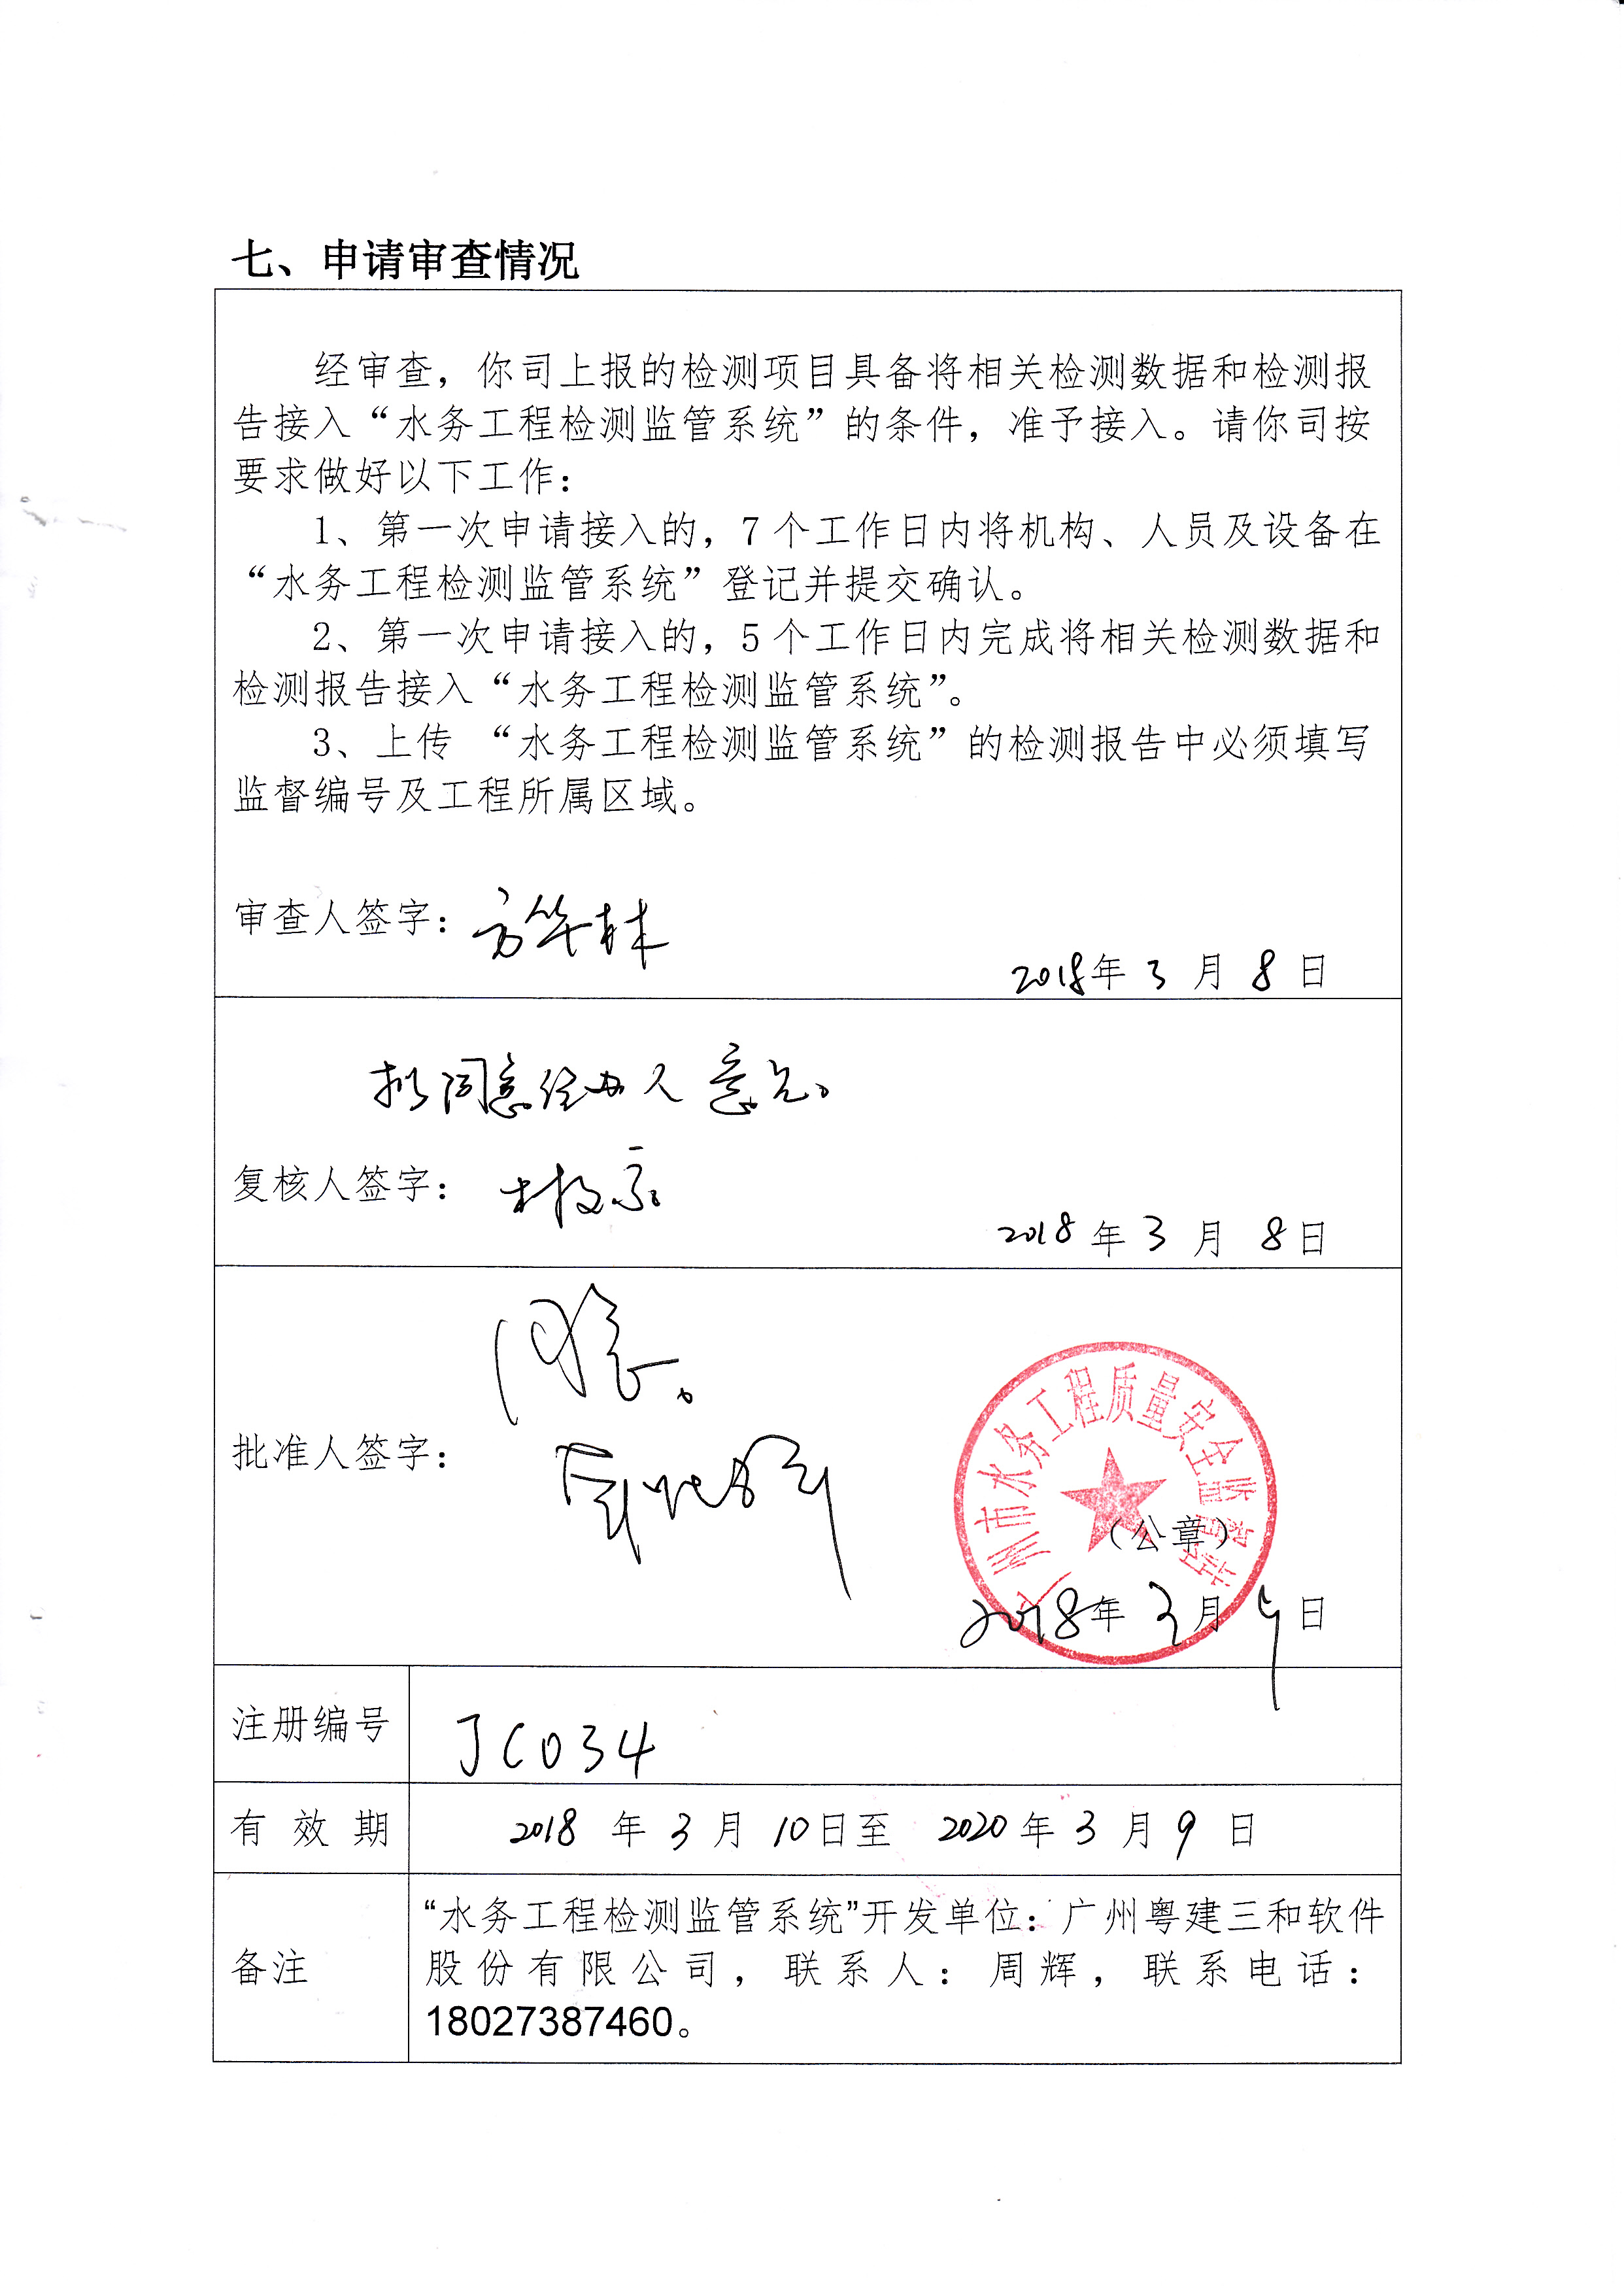 七、申请审查情况
经审查，你司上报的检测项目具备将相关检测数据和检测报
告接入“水务工程检测监管系统”的条件，准予接入。请你司按
要求做好以下工作：
1、第一次申请接入的，7个工作日内将机构、人员及设备在
“水务工程检测监管系统”登记并提交确认。
2、第一次申请接入的，5个工作日内完成将相关检测数据和
检测报告接入“水务工程检测监管系统”。
3、上传 “水务工程检测监管系统”的检测报告中必须填写
监督编号及工程所属区域。
审查人签字：方华林
2018年3月8日
拟同意经办人意见。
复核人签字：
2018年3月8日
同意。
批准人签字：
广州市水务工程质量安全监督站
（公章）
2018年3月9日
注册编号 JC034
有效期 2018年3月10日至 2020年3月9日
备注
“水务工程检测监管系统”开发单位：广州粤建三和软件
股份有限公司，联系人：周辉，联系电话：
18027387460。